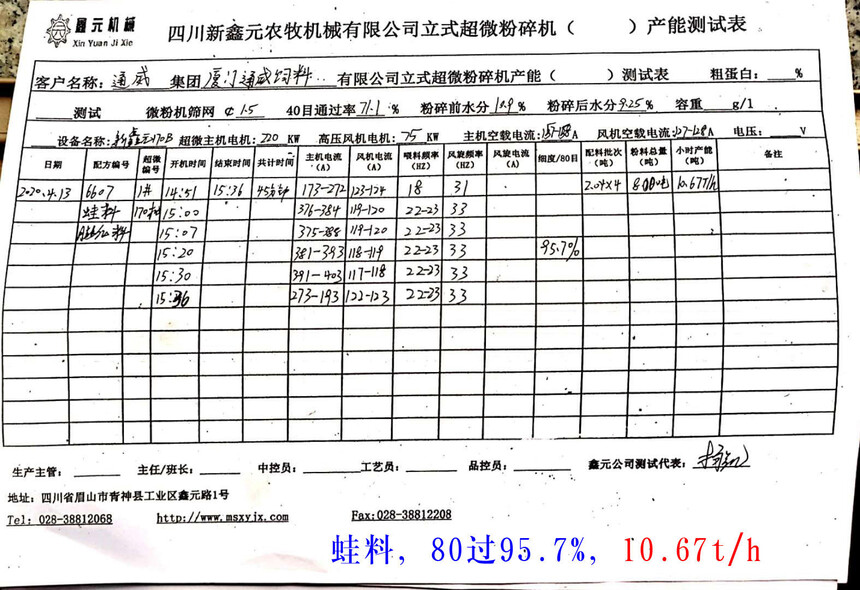 鑫元机械
Xin Yuan Ji Xie
四川新鑫元农牧机械有限公司立式超微粉碎机（ ）产能测试表
客户名称：通威 集团厦门通威饲料.. 有限公司立式超微粉碎机产能（ ）测试表 粗蛋白：____%
____测试 微粉机筛网 ¢1.5 40目通过率71.1% 粉碎前水分10.9% 粉碎后水分9.25% 容重____g/l
设备名称：新鑫元170B 超微主机电机：220 KW 高压风机电机：75 KW 主机空载电流：A 风机空载电流：127-128A 电压：____V
日期 配方编号 超微编号 开机时间 结束时间 共计时间 主机电流（A） 风机电流（A） 喂料频率（HZ） 风旋频率（HZ） 风旋电流（A） 细度/80目 配料批次（吨） 粉料总量（吨） 小时产能（吨） 备注
2020.4.13 6607 1# 14:51 15:36 45分钟 173-272 123-124 18 31 2.04x4 8.00吨 10.67T/h
蛙料 170 15:00 376-384 119-120 22-23 33
料 15:07 375-388 119-120 22-23 33
15:20 381-393 118-119 22-23 33 95.7%
15:30 391-403 117-118 22-23 33
15:36 273-193 122-123 22-23 33
生产主管：____ 主任/班长：____ 中控员：____ 工艺员：____ 品控员：____ 鑫元公司测试代表：
地址：四川省眉山市青神县工业区鑫元路1号
Tel: 028-38812068 http://www.msxyjx.com Fax:028-38812208
蛙料, 80过95.7%, 10.67t/h